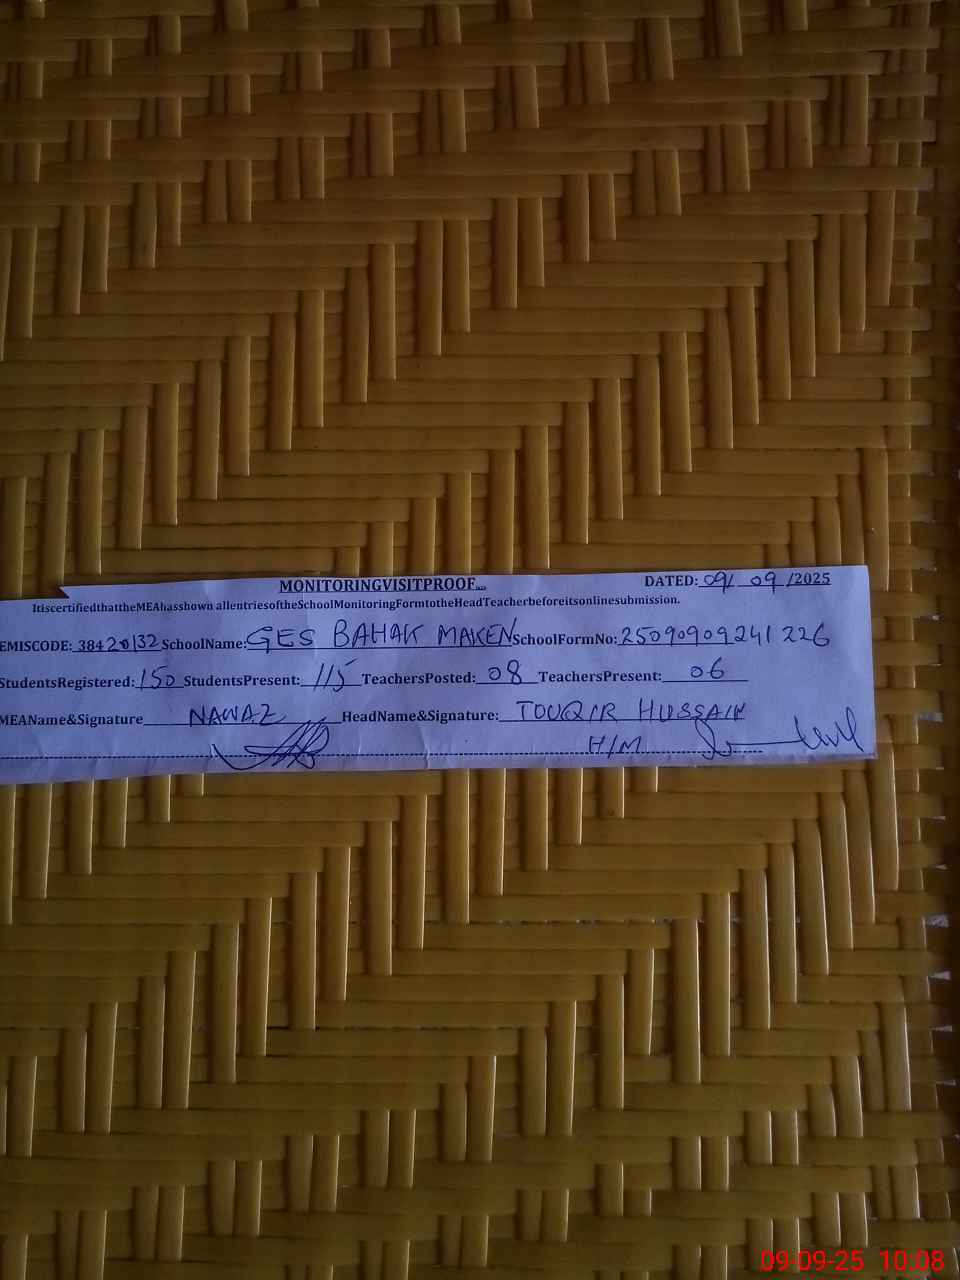 MONITORINGVISITPROOF.... DATED: 09/ 09 /2025
ItiscertifiedthattheMEAhasshown allentriesoftheSchoolMonitoringFormtotheHeadTeacherbeforeitsonlinesubmission.
EMISCODE: 38420132 SchoolName: GES BAHAK MAKEN SchoolFormNo: 25090909241226
StudentsRegistered: 150 StudentsPresent: 115 TeachersPosted: 08 TeachersPresent: 06
MEAName&Signature NAWAZ HeadName&Signature: TOUQIR HUSSAIN
H/M
09-09-25 10:08